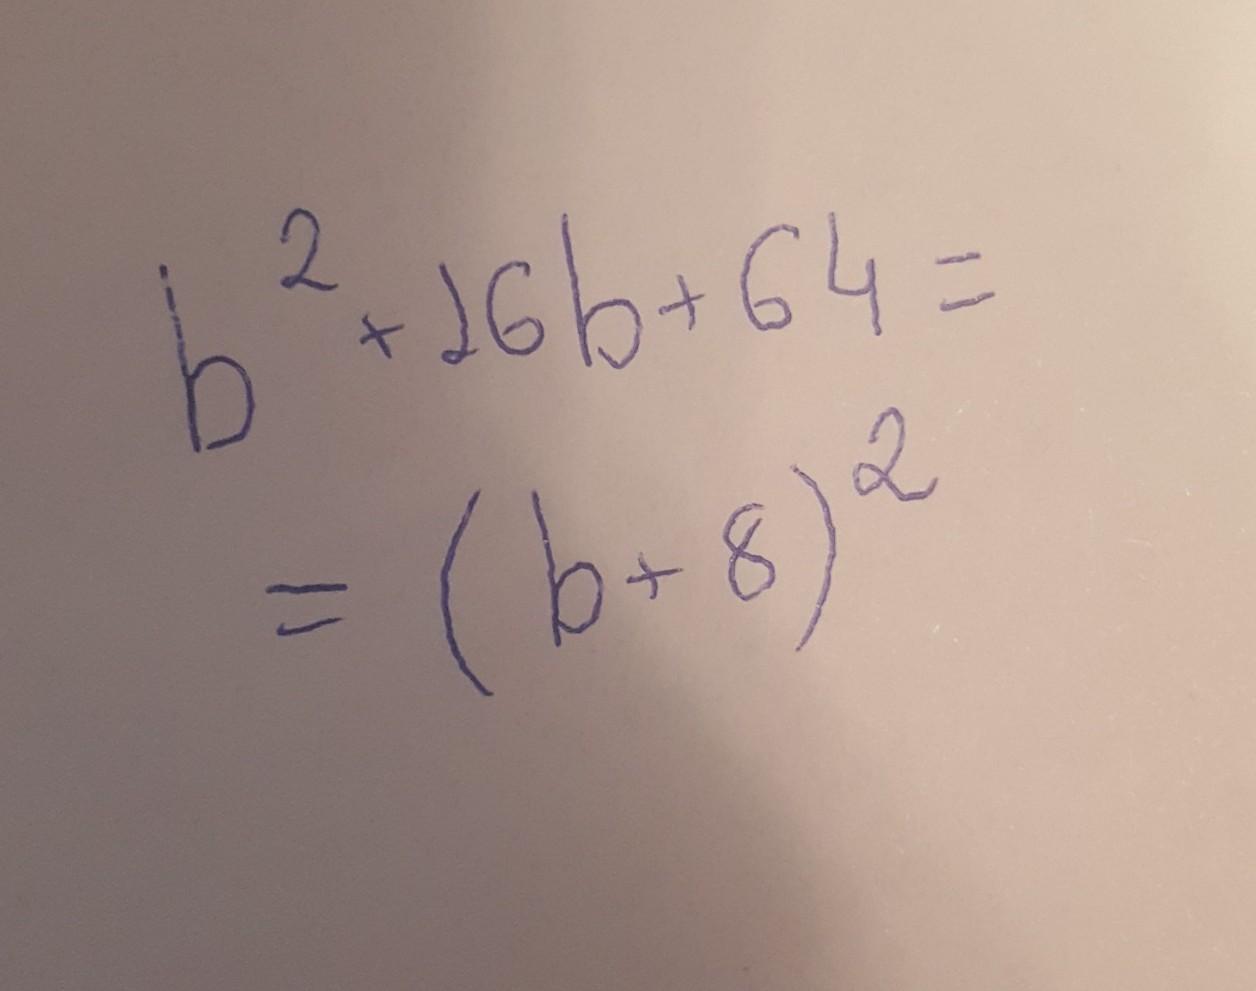 b² + 16b + 64 =
= (b + 8)²